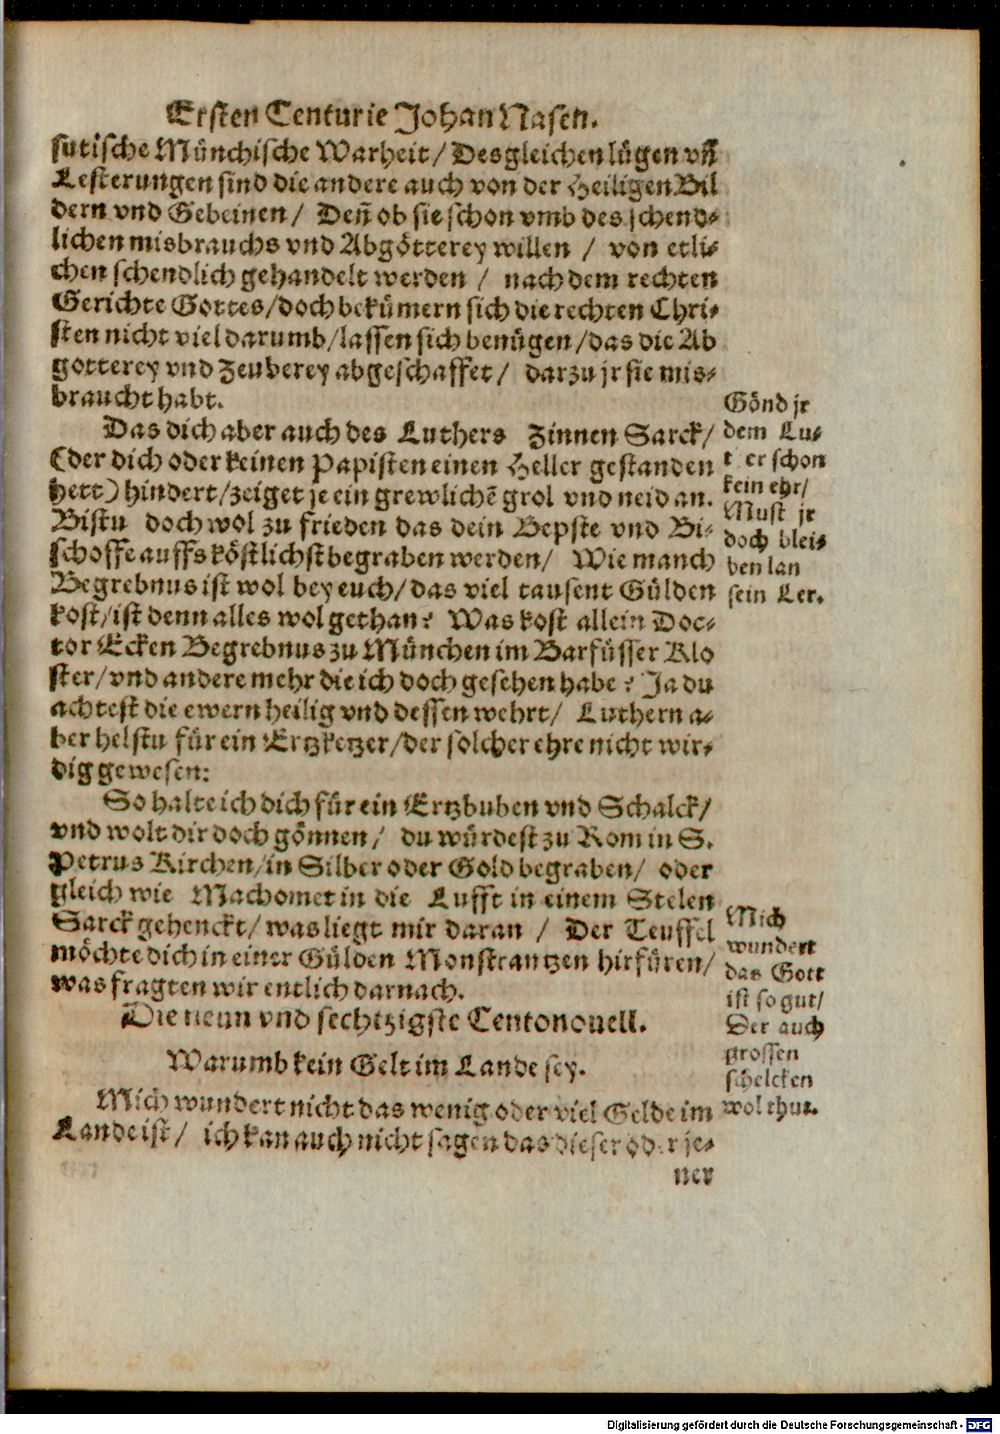 Ersten Centurie Johan Nasen.
sutische Münchische Warheit/ Desgleichen lügen vñ
Lesterungen sind die andere auch von der Heiligen Bil
dern vnd Gebeinen/ Deñ ob sie schon vmb des schend-
lichen misbrauchs vnd Abgötterey willen / von etli-
chen schendlich gehandelt werden / nach dem rechten
Gerichte Gottes/ doch bekümern sich die rechten Chri-
sten nicht viel darumb/ lassen sich benügen/ das die Ab
götterey vnd Zeuberey abgeschaffet/ darzu jr sie mis-
braucht habt.
Das dich aber auch des Luthers Zinnen Sarck/
(der dich oder keinen Papisten einen Heller gestanden
hett) hindert/ zeiget je ein grewlichẽ grol vnd neid an.
Bistu doch wol zu frieden das dein Bepste vnd Bi-
schoffe auffs köstlichst begraben werden/ Wie manch
Begrebnus ist wol bey euch/ das viel tausent Gülden
kost/ ist denn alles wol gethan? Was kost allein Doc-
tor Ecken Begrebnus zu München im Barfüsser Klo
ster/ vnd andere mehr die ich doch gesehen habe? Ja du
achtest die ewern heilig vnd dessen wehrt/ Luthern a-
ber helstu für ein Ertzketzer/ der solcher ehre nicht wir-
dig gewesen:
So halte ich dich für ein Ertzbuben vnd Schalck/
vnd wolt dir doch gönnen/ du würdest zu Rom in S.
Petrus Kirchen/ in Silber oder Gold begraben/ oder
gleich wie Machomet in die Lufft in einem Stelen
Sarck gehenckt/ was liegt mir daran / Der Teuffel
möchte dich in einer Gülden Monstrantzen hirfüren/
was fragten wir entlich darnach.
Die neun vnd sechtzigste Centonouell.
Warumb kein Gelt im Lande sey.
Mich wundert nicht das wenig oder viel Gelde im
Lande ist/ ich kan auch nicht sagen das dieser oder je-
ner
Gönd jr
dem Lu-
t er schon
kein ehr/
Must jr
doch blei-
ben lan
sein Ler.
Mich
wundert
das Gott
ist so gut/
Der auch
grossen
schelcken
wol thut.
Digitalisierung gefördert durch die Deutsche Forschungsgemeinschaft - DFG